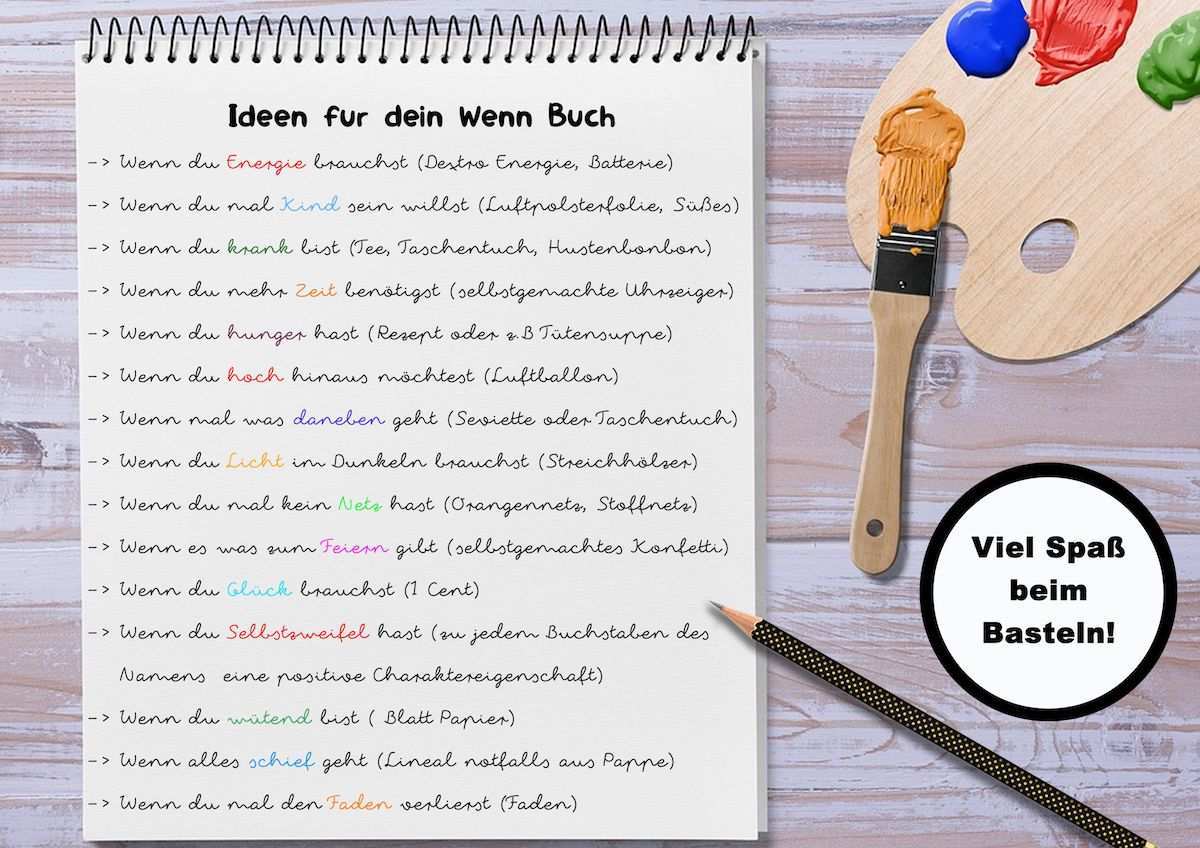 Ideen fur dein Wenn Buch
-> Wenn du Energie brauchst (Dextro Energie, Batterie)
-> Wenn du mal Kind sein willst (Luftpolsterfolie, Süßes)
-> Wenn du krank bist (Tee, Taschentuch, Hustenbonbon)
-> Wenn du mehr Zeit benötigst (selbstgemachte Uhrzeiger)
-> Wenn du hunger hast (Rezept oder z.B Tütensuppe)
-> Wenn du hoch hinaus möchtest (Luftballon)
-> Wenn mal was daneben geht (Seviette oder Taschentuch)
-> Wenn du Licht im Dunkeln brauchst (Streichhölzer)
-> Wenn du mal kein Netz hast (Orangennetz, Stoffnetz)
-> Wenn es was zum Feiern gibt (selbstgemachtes Konfetti)
-> Wenn du Glück brauchst (1 Cent)
-> Wenn du Selbstzweifel hast (zu jedem Buchstaben des
Namens eine positive Charaktereigenschaft)
-> Wenn du wütend bist ( Blatt Papier)
-> Wenn alles schief geht (Lineal notfalls aus Pappe)
-> Wenn du mal den Faden verlierst (Faden)
Viel Spaß
beim
Basteln!